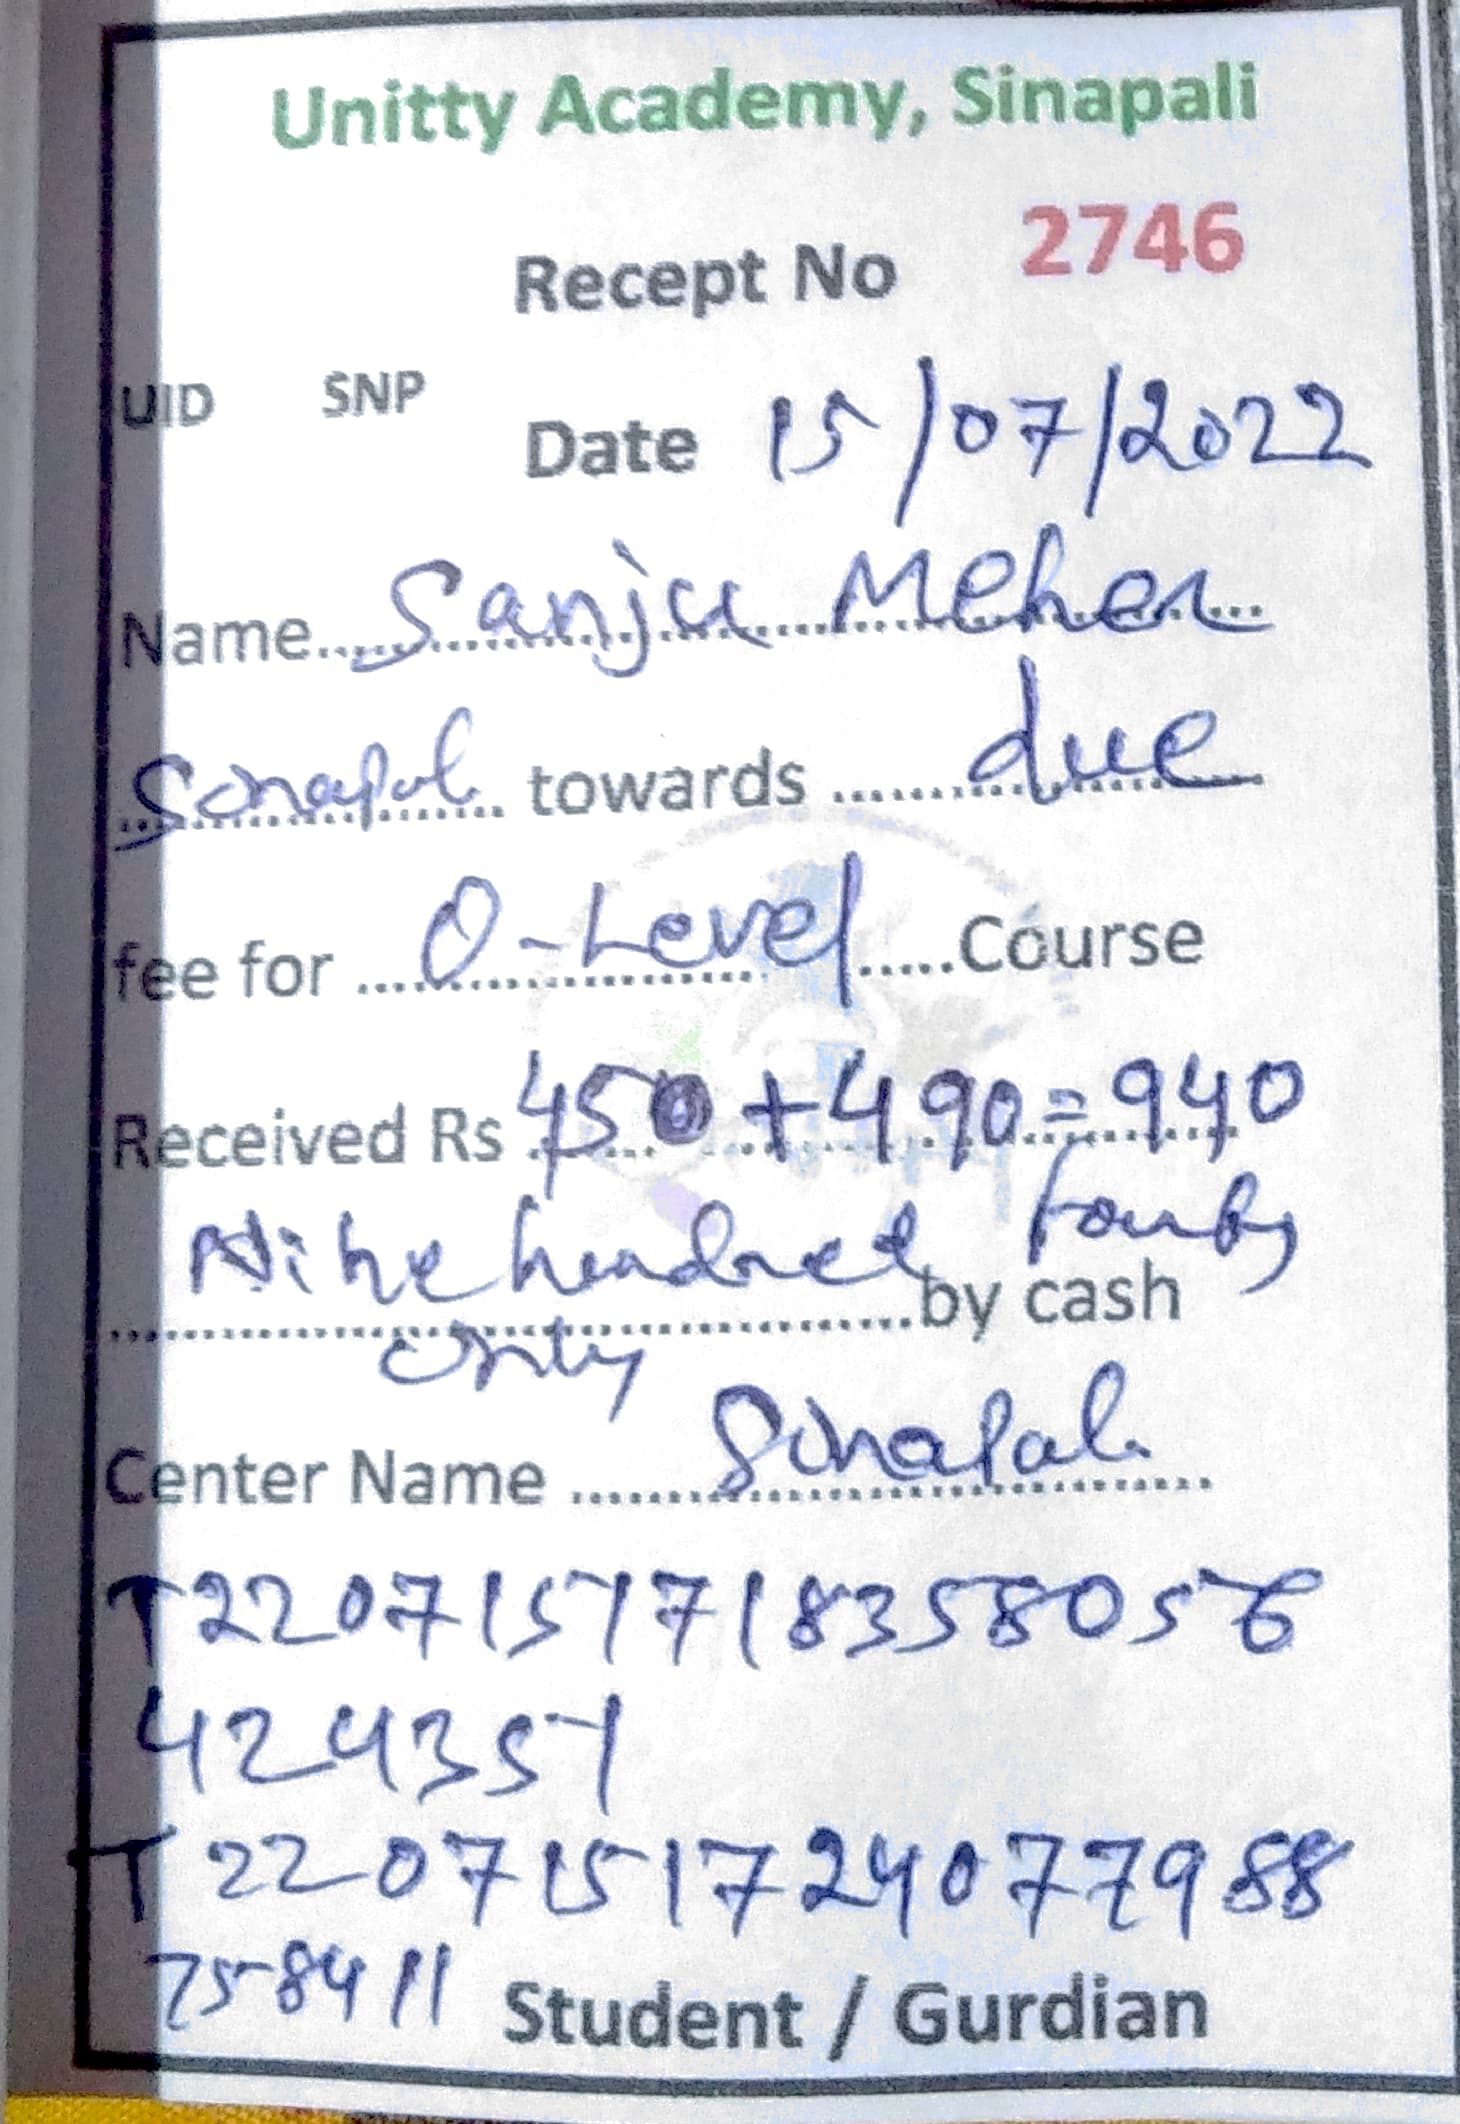 Unitty Academy, Sinapali
Recept No 2746
UID SNP
Date 15/07/2022
Name Sanju Meher
towards due
fee for O-Level Course
Received Rs 450+490=940
Nine hundred fourty
by cash
only
Center Name
T22071517183558056
424351
T2207151724077988
758411
Student / Gurdian